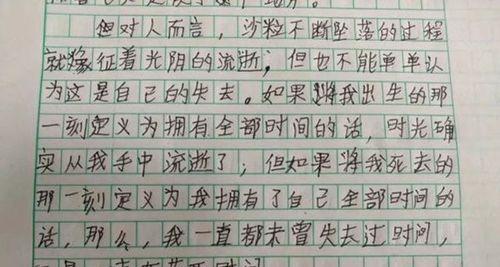 但对人而言，沙粒不断坠落的过程
就象征着光阴的流逝；但也不能单单认
为这是自己的失去。如果将我出生的那
一刻定义为拥有全部时间的话，时光确
实从我手中流逝了；但如果将我死去的
那一刻定义为我拥有了自己全部时间的
话，那么，我一直都未曾失去过时间，